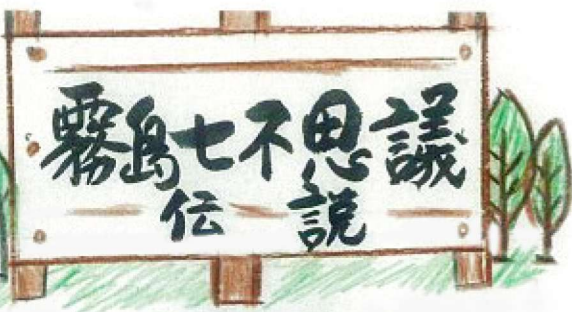 霧島七不思議
伝説